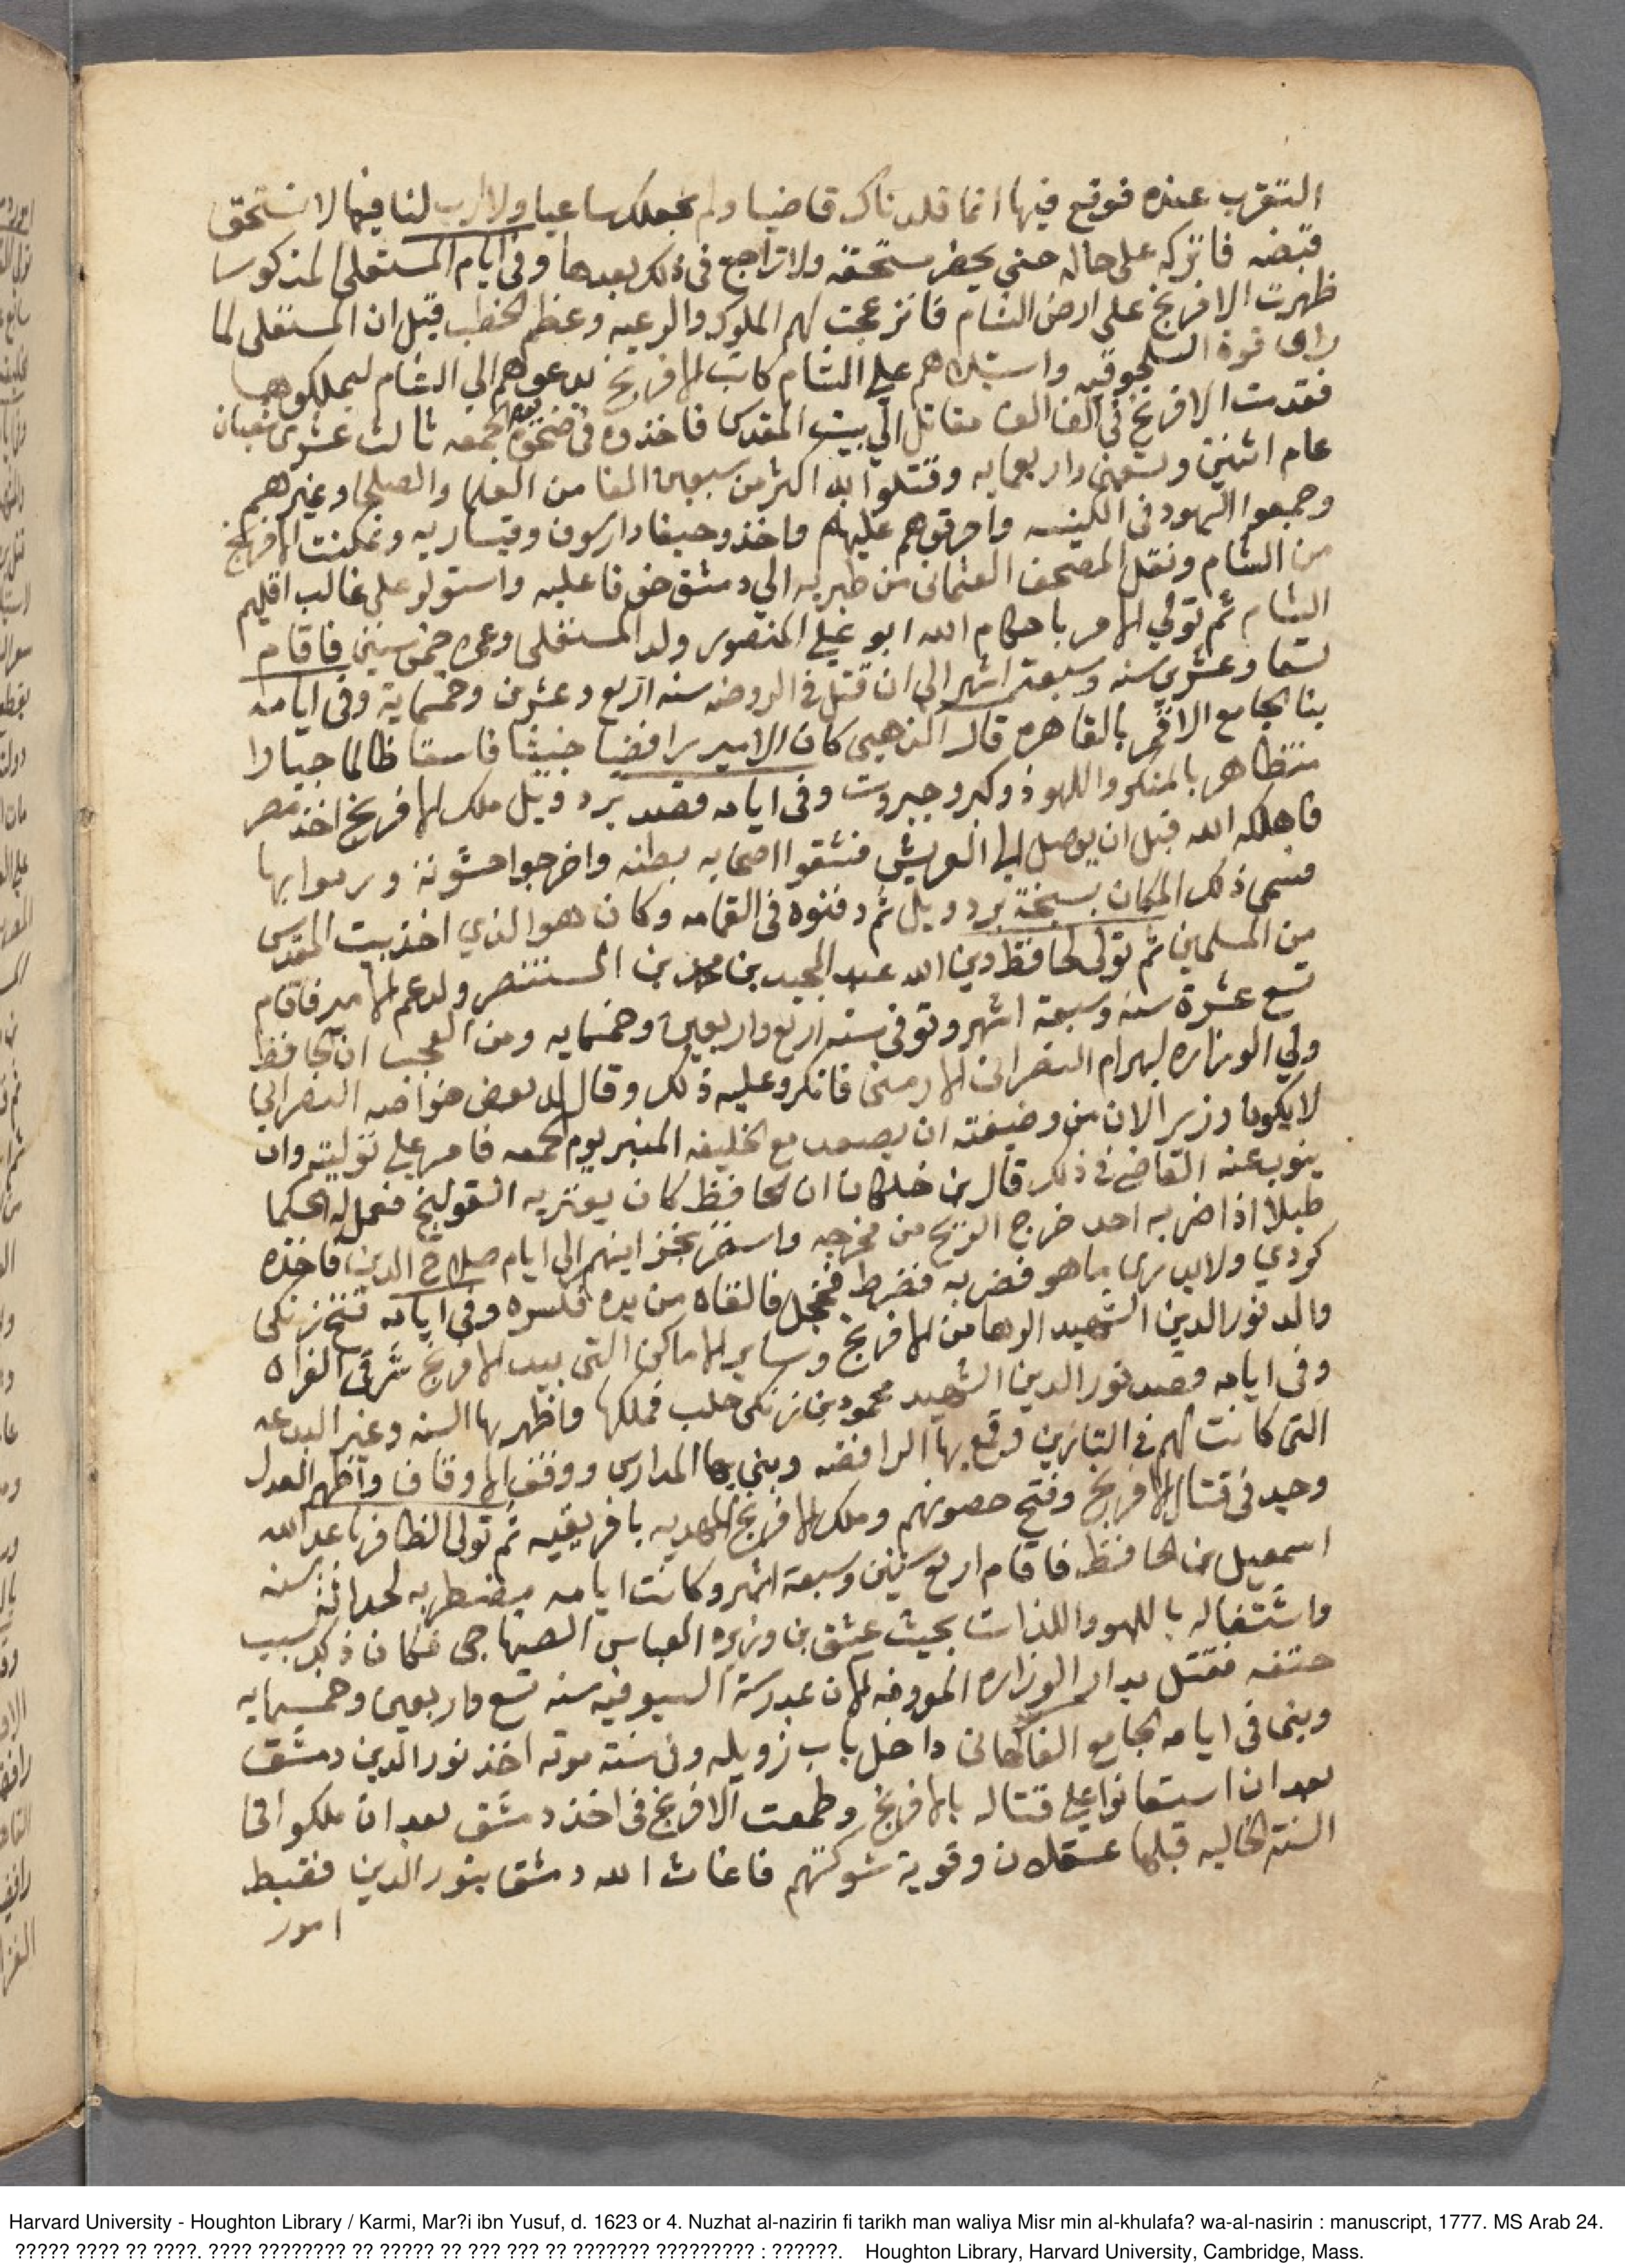 التقرب عنده فوقع فيها انما قلدناك قاضيا ولم نجعلك ساعيا ولا ارب لنا فيما لا نستحق
قبضه فاتركه على حاله حتى يحضر مستحقه ولا تراجع في ذلك بعدها وفي ايام المستعلى المذكور
ظهرت الافرنج على ارض الشام فانزعجت لهم الملوك والرعيه وعظم الخطب قيل ان المستعلى لما
راى قوة السلجوقيه واستيلاهم علي الشام كاتب الافرنج يدعوهم الي الشام ليملكوها
فقدمت الافرنج في الف الف مقاتل الي بيت المقدس فاخذوه في ضحوة يوم الجمعه ثالث عشري شعبان
عام اثنين وتسعين واربعمايه وقتلوا به اكثر من سبعين الفا من العلما والصلحا وغيرهم
وجمعوا اليهود في الكنيسه واحرقوهم عليهم واخذوا حيفا وارسوف وقيساريه وتمكنت الافرنج
من الشام ونقل المصحف العثمانى من طبريه الي دمشق خوفا عليه واستولو على غالب اقليم
الشام ثم تولي الامر باحكام الله ابو علي المنصور ولد المستعلى وعمره خمس سنين فاقام
تسعا وعشري سنه وسبعة اشهر الى ان قتل في الروضه سنه اربع وعشرين وخمسماية وفي ايامه
بنا الجامع الاقمر بالقاهره قال الذهبى كان الامير رافضيا خبيثا فاسقا ظالما جبارا
متظاهر بالمنكر واللهو ذو كبر وجبروت وفي ايامه قصد بردويل ملك الافرنج اخذ مصر
فاهلكه الله قبل ان يوصل الى العريش فشقوا اصحابه بطنه واخرجوا حشوته ورموا بها
فسمى ذلك المكان بسبخة بردويل ثم دفنوه في القمامه وكان هو الذي اخذ بيت المقدس
من المسلمين ثم تولى الحافظ دين الله عبد المجيد بن محمد بن المستنصر ولد عم الامر فاقام
تسع عشرة سنه وسبعة اشهر وتوفي سنه اربع واربعين وخمسمايه ومن العجب ان الحافظ
ولي الوزاره لبهرام النصرانى الارمنى فانكر وعليه ذلك وقال له بعض خواصه النصراني
لا يكون وزيرا لان من وضيفته ان يصعد مع الخليفه المنبر يوم الجمعه فامر علي توليته وان
ينوب عنه القاضي في ذلك قال بن خلكان ان الحافظ كان يعتريه القولنج فعمل له الحكما
طبلا اذا ضرب به احد خرج الريح من مخرجه واستمر بخزاينهم الى ايام صلاح الدين فاخذه
كردي ولا يدري ما هو فضربه فضرط فخجل فالقاه من يده فكسره وفي ايامه فتح زنكى
والد نور الدين الشهيد الرها من الافرنج وساير الاماكن التى بيد الافرنج شرقي الفراه
وفي ايامه قصد نور الدين الشهيد محمود بن زنكى حلب فملكها واظهر بها السنه وغير البدعه
التى كانت لهم في التازين وقمع بها الرافضه وبني بها المدارس ووقف الاوقاف واظهر العدل
وجد في قتال الافرنج وفتح حصونهم وملك الافرنج المهديه بافريقيه ثم تولى الظافر باعدالله
اسمعيل بن الحافظ فاقام اربع سنين وسبعة اشهر وكانت ايامه مضطربه لحداثة سنه
واشتغاله باللهو واللذات بحيث عشق بن وزيره العباس الصنهاجى فكان ذلك سبب
حتفه فقتل بدار الوزاره المعروفه الان بمدرسة السيوفيه سنه تسع واربعين وخمسمايه
وبنى في ايامه الجامع الفاكهانى داخل باب زويله وفي سنة موته اخذ نور الدين دمشق
بعد ان استعانوا علي قتاله بالافرنج وطمعت الافرنج في اخذ دمشق بعد ان ملكوا في
السنة الخاليه قبلها عسقلان وقوية شوكتهم فاغاث الله دمشق بنور الدين فضبط
امور
Harvard University - Houghton Library / Karmi, Mar?i ibn Yusuf, d. 1623 or 4. Nuzhat al-nazirin fi tarikh man waliya Misr min al-khulafa? wa-al-nasirin : manuscript, 1777. MS Arab 24.
????? ???? ?? ????. ???? ???????? ?? ????? ?? ??? ??? ?? ??????? ????????? : ??????. Houghton Library, Harvard University, Cambridge, Mass.